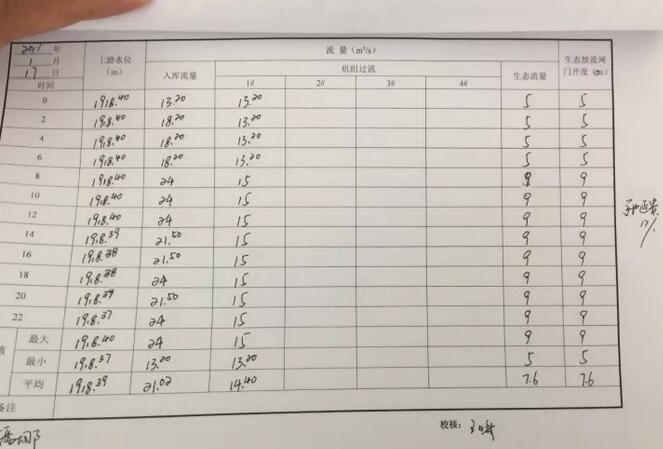 2021年
1月
17日
时间
上游水位(m)
流量(m³/s)
入库流量
机组过流
1# 2# 3# 4#
生态流量
生态放流闸门开度(cm)
0 1918.40 13.20 13.20 5 5
2 1918.40 18.20 13.20 5 5
4 1918.40 18.20 13.20 5 5
6 1918.40 18.20 13.20 5 5
8 1918.40 24 15 9 9
10 1918.40 24 15 9 9
12 1918.40 24 15 9 9
14 1918.39 21.50 15 9 9
16 1918.38 21.50 15 9 9
18 1918.38 24 15 9 9
20 21.50 15 9 9
22 1918.37 24 15 9 9
值
最大 1918.40 24 15 9 9
最小 1918.37 13.20 13.20 5 5
平均 1918.39 21.02 14.40 7.6 7.6
备注
校核：